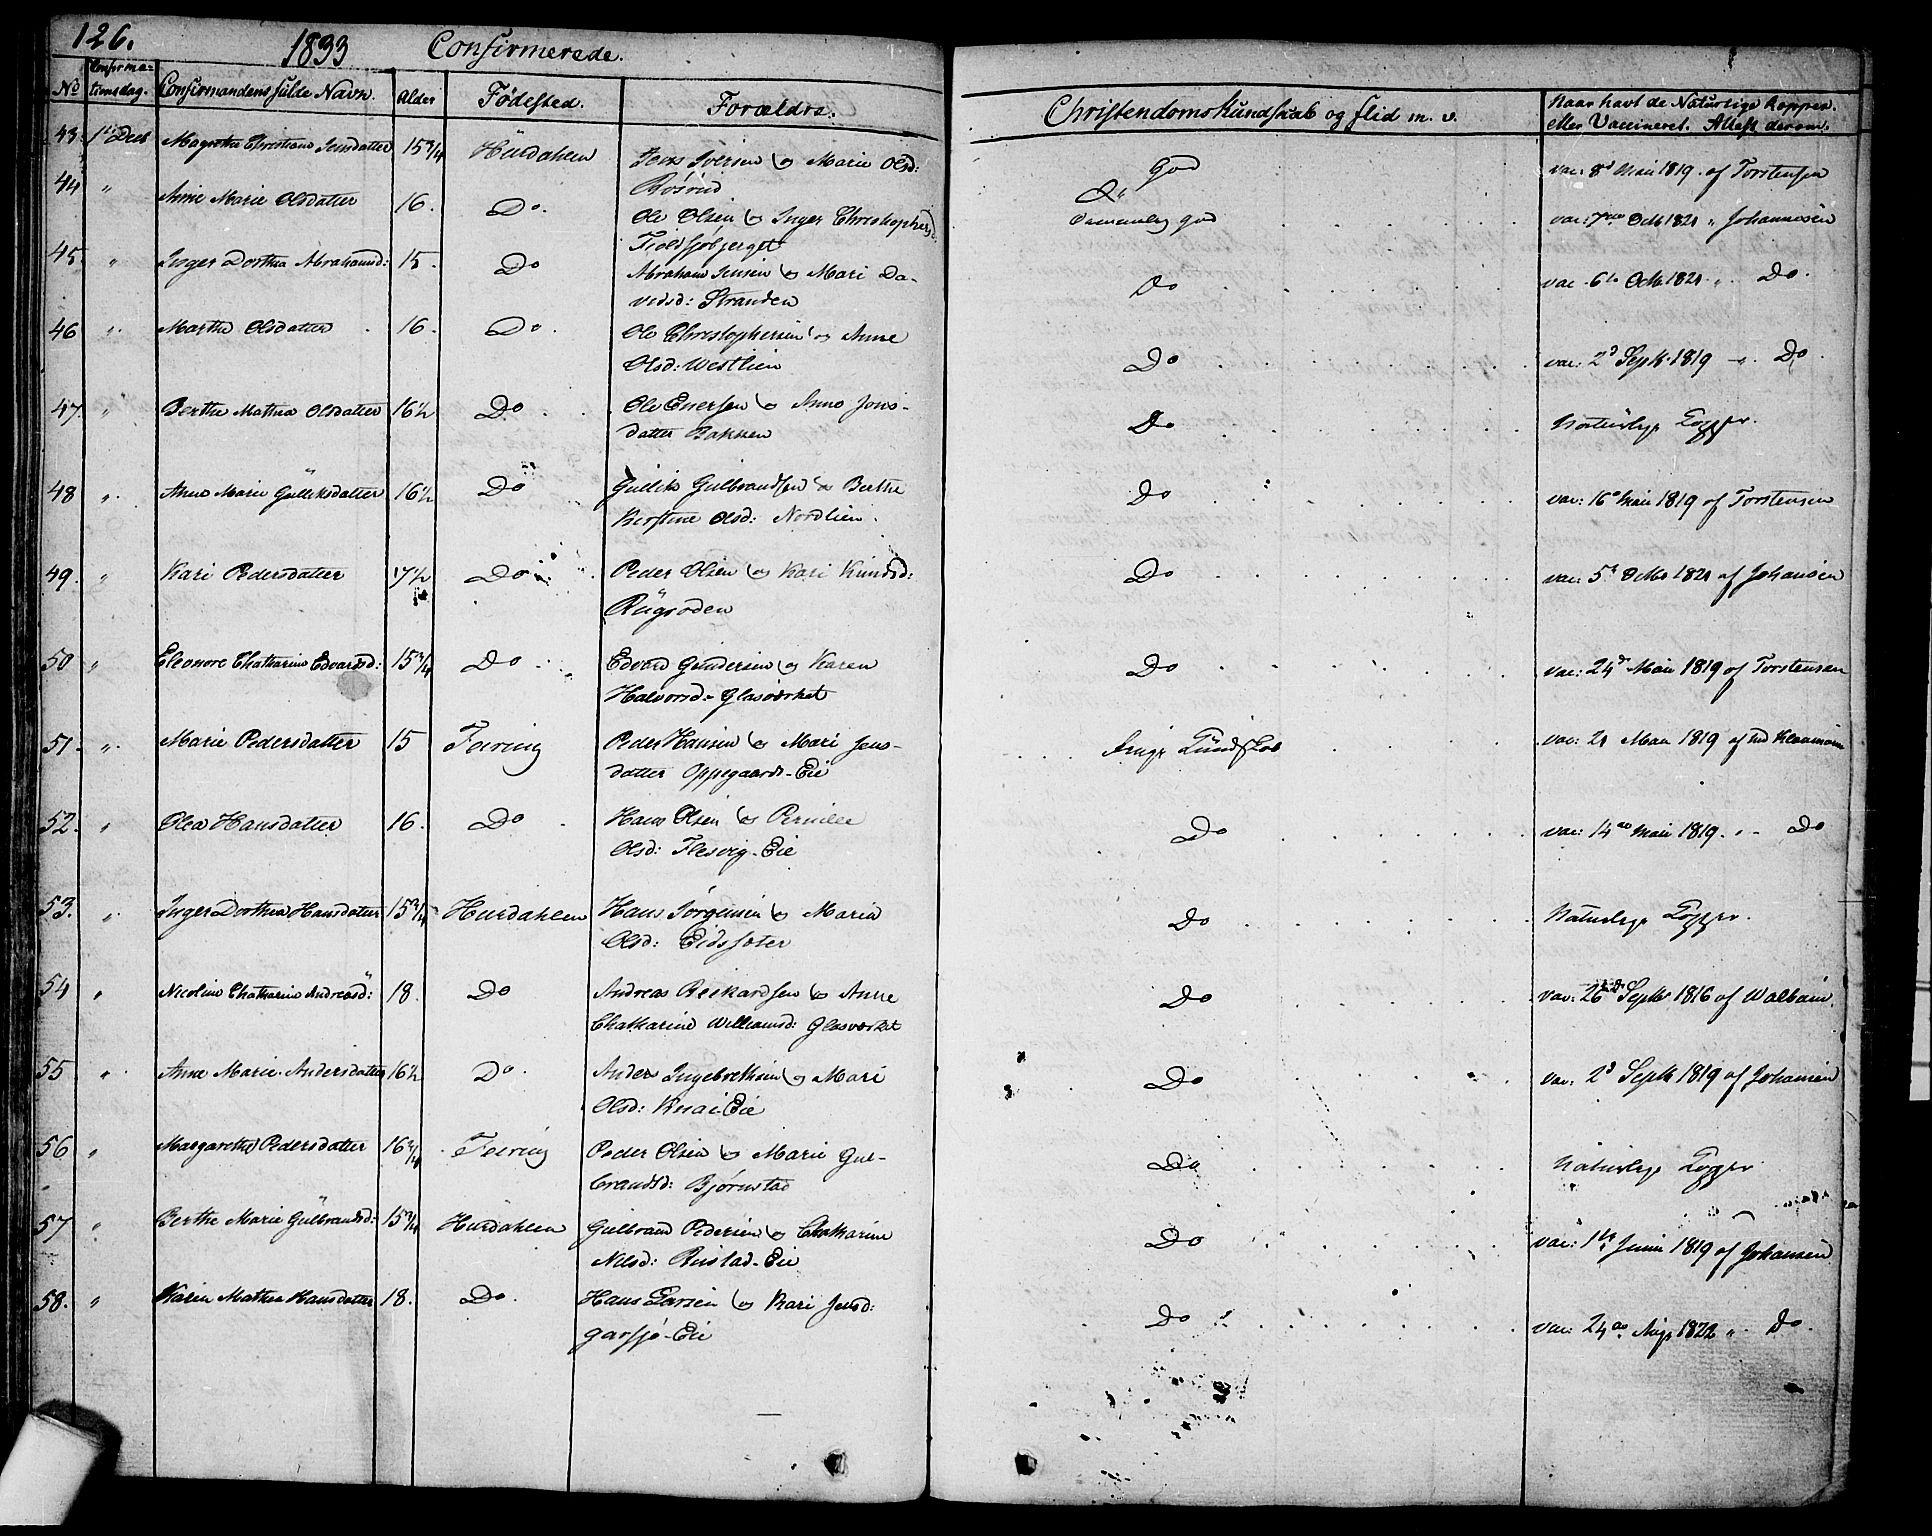 126.
1833 Confirmerede.
No Confirmationsdag. Confirmandens fulde Navn. Alder Fødested. Forældre. Christendomskundskab og flid m. v. Naar havt de Naturlige Kopper eller Vaccineret. Attest derom.
43. 1ste Decb Magrethe Christiane Jensdatter 15 3/4 Hurdahlen Jens Iversen og Marie Olsd: God vac: 8d Maii 1819 af Torstensen
Røsrud
44 " Anne Marie Olsdatter 16. Do. Ole Olsen og Inger Christophersd: Do temmelig god vac: 7de Octb 1821 " Johannesen
Fioldsjøbjerget
45. " Inger Dorthea Abrahamsd: 15. Do Abraham Jensen og Mari Da- Do vac. 6te Octb 1821 " Do.
vidsd: Stranden
46 " Marthe Olsdatter 16. Do. Ole Christophersen og Anne Do vac: 2d Septb. 1819 " Do.
Olsd: Westlien
47. " Berthe Mathea Olsdatter 16½ Do Ole Enersen og Anne Jens- Do Naturlige Kopper.
datter Bakken
48 " Anne Marie Gulliksdatter 16½ Do Gullik Gulbrandsen og Berthe Do vac: 16d Maii 1819 af Torstensen
Kirstine Olsd: Nordlien.
49. " Kari Pedersdatter 17½ Do Peder Olsen og Kari Knudsd: Do vac: 5d Octbr 1821 af Johansen
Rugsoden
50 " Eleonore Chatharine Edvardsd: 15 3/4 Do Edvard Gundersen og Karen Do vac: 24d Maii 1819 af Torstensen
Halvorsd: Glasværket
51. " Marie Pedersdatter 15 Feiring Peder Hansen og Mari Jens- Ringe Kundskab vac: 21 Maii 1819 af
datter Oppegaards-Eie
52. " Olea Hansdatter 16. Do Hans Olsen og Pernille Do vac: 14de Maii 1819 " Do
Olsd: Flesvig-Eie
53. " Inger Dorthea Hansdatter 15 3/4 Hurdahlen Hans Jørgensen og Maria Do Naturlige Kopper.
Olsd: Eidssæter
54 " Nicoline Chatharine Andreasd: 18. Do Andreas Reikardsen og Anne Do vac: 26d Septb 1816 af
Chatharine Williamsd: Glasværket
55 " Anne Marie Andersdatter 16½ Do. Anders Ingebrethsen og Mari Do vac: 2d Septb 1819 af Johansen
Olsd: Knai-Eie
56 " Margarethe Pedersdatter 16 3/4 Feiring Peder Olsen og Marie Gul- Do Naturlige Kopper
brandsd: Bjørnstad
57 " Berthe Marie Gulbrandsd: 15 3/4 Hurdahlen Gulbrand Pedersen og Chatharine Do vac: 1ste Junii 1819 af Johansen
Nilsd: Rustad-Eie
58. " Karen Mathea Hansdatter 18. Do. Hans Larsen og Kari Jensd: Do vac: 24de Aug 1822 " Do.
Garsjø-Eie